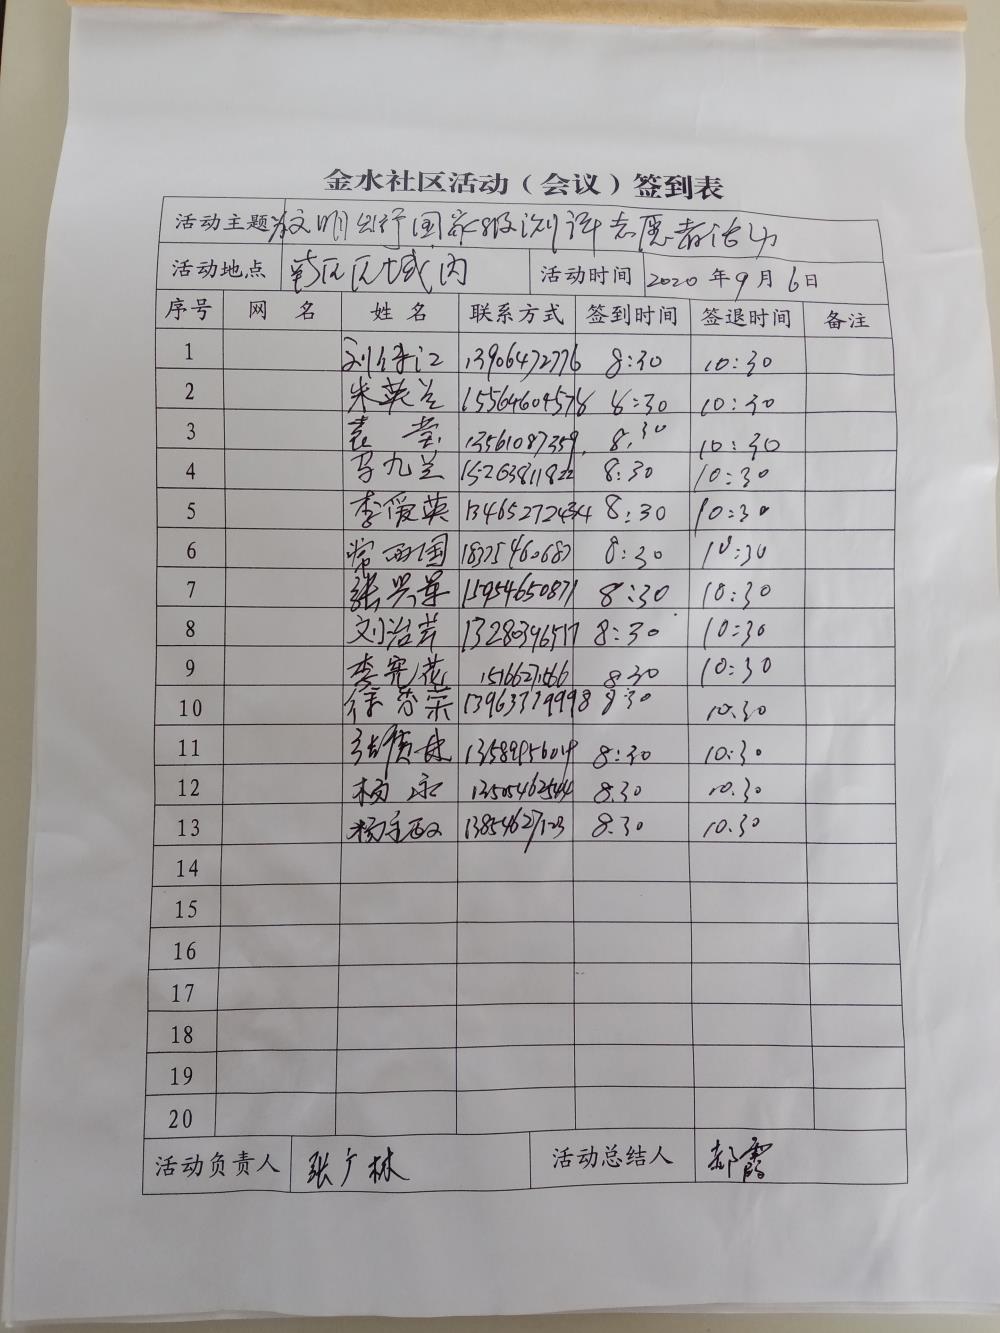 金水社区活动（会议）签到表
活动主题 文明出行国家级测评志愿者活动
活动地点 区域内 活动时间 2020年9月6日
序号 网 名 姓 名 联系方式 签到时间 签退时间 备注
1 13906472776 8:30 10:30
2 朱英兰 15564604578 8:30 10:30
3 袁 13561087359 8:30 10:30
4 马九兰 15263811822 8:30 10:30
5 李爱英 8:30 10:30
6 常西国 18375460687 8:30 10:30
7 张兴革 15954650871 8:30 10:30
8 刘治芹 13280346517 8:30 10:30
9 李宪花 8:30 10:30
10 徐秀荣 13963379998 8:30 10.30
11 8:30 10:30
12 杨永 13505462544 8.30 10.30
13 13854627123 8.30 10.30
14
15
16
17
18
19
20
活动负责人 张广林 活动总结人 郝霞